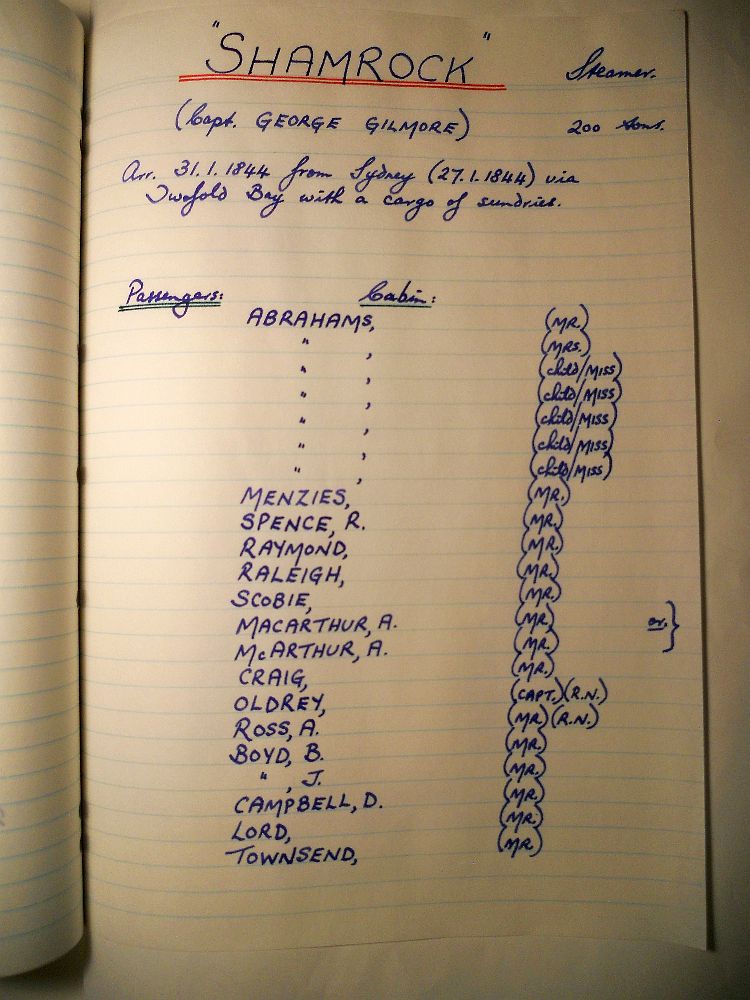 "SHAMROCK" Steamer.
(Capt. GEORGE GILMORE) 200 tons.
Arr. 31.1.1844 from Sydney (27.1.1844) via
Twofold Bay with a cargo of sundries.
Passengers: Cabin:
ABRAHAMS, (MR.)
" , (MRS.)
" , (child/MISS)
" , (child/MISS)
" , (child/MISS)
" , (child/MISS)
" , (child/MISS)
MENZIES, (MR.)
SPENCE, R. (MR.)
RAYMOND, (MR.)
RALEIGH, (MR.)
SCOBIE, (MR.)
MACARTHUR, A. (MR.) or }
McARTHUR, A. (MR.)
CRAIG, (MR.)
OLDREY, (CAPT.)(R.N.)
ROSS, A. (MR.)(R.N.)
BOYD, B. (MR.)
" , J. (MR.)
CAMPBELL, D. (MR.)
LORD, (MR.)
TOWNSEND, (MR.)